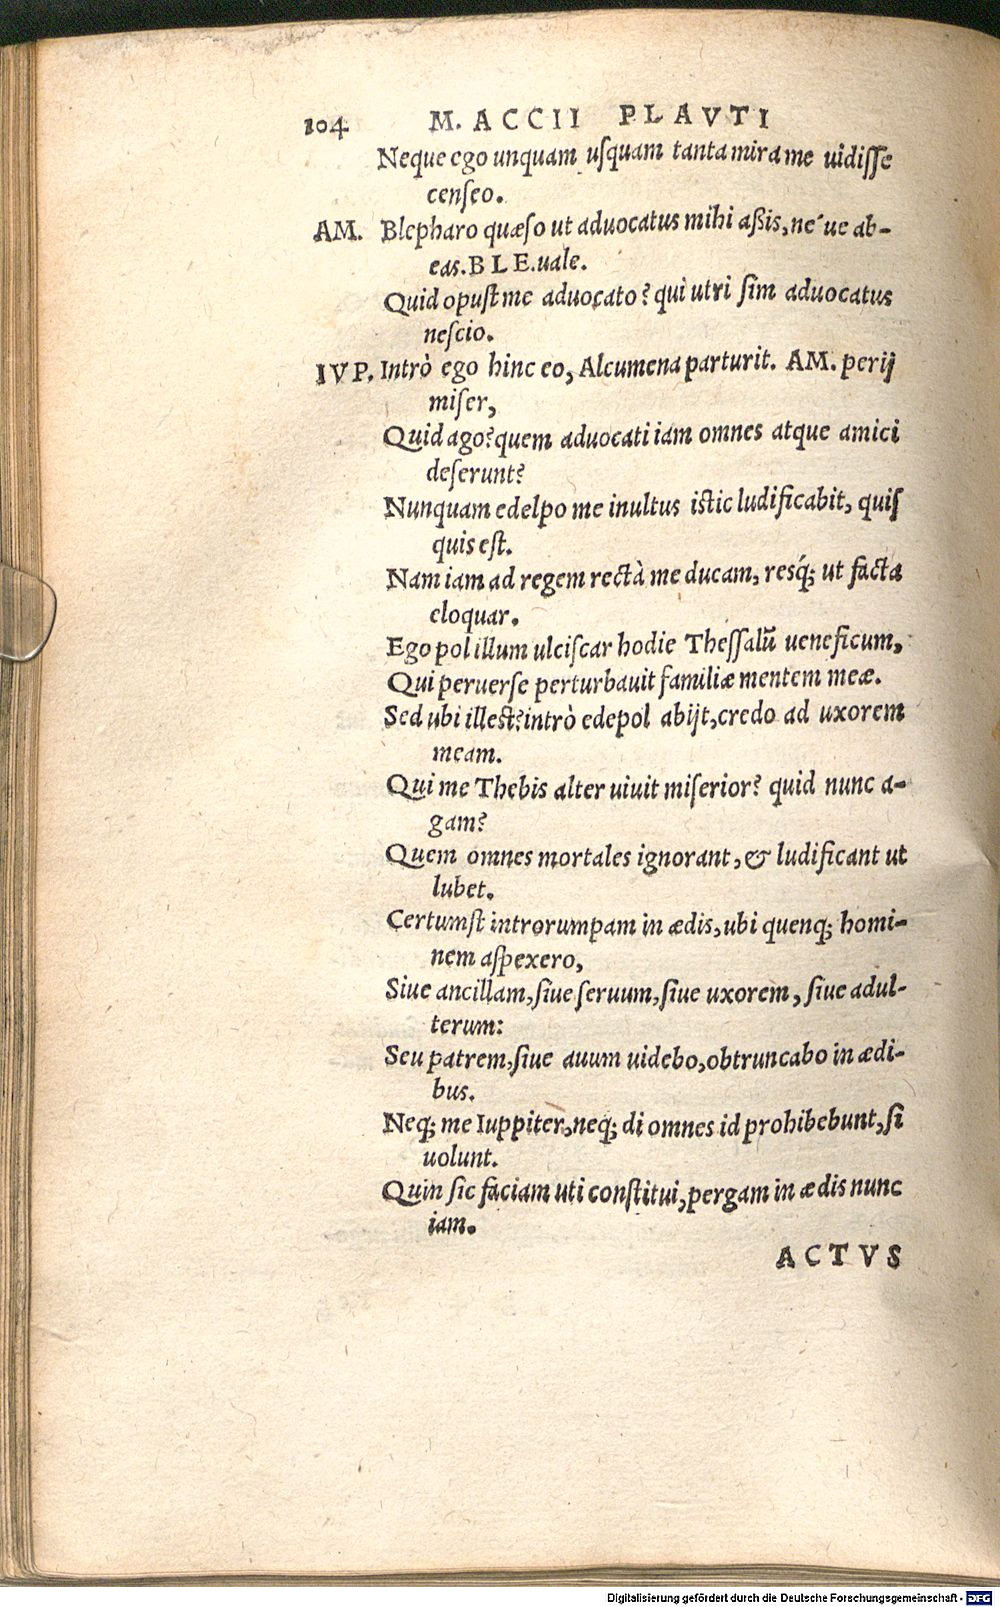 104 M. ACCII PLAVTI
Neque ego unquam uſquam tanta mira me uidiſſe
cenſeo.
AM. Blepharo quæſo ut aduocatus mihi aßis, ne´ue ab-
eas. BLE. uale.
Quid opuſt me aduocato? qui utri ſim aduocatus
neſcio.
IVP. Intrò ego hinc eo, Alcumena parturit. AM. perij
miſer,
Quid ago? quem aduocati iam omnes atque amici
deſerunt?
Nunquam edelpo me inultus iſtic ludificabit, quiſ
quis eſt.
Nam iam ad regem rectà me ducam, resq́; ut facta
eloquar.
Ego pol illum ulciſcar hodie Theſſalũ ueneficum,
Qui peruerſe perturbauit familiæ mentem meæ.
Sed ubi illeſt? intrò edepol abijt, credo ad uxorem
meam.
Qui me Thebis alter uiuit miſerior? quid nunc a-
gam?
Quem omnes mortales ignorant, & ludificant ut
lubet.
Certumſt introrumpam in ædis, ubi quenq; homi-
nem aſpexero,
Siue ancillam, ſiue ſeruum, ſiue uxorem, ſiue adul-
terum:
Seu patrem, ſiue auum uidebo, obtruncabo in ædi-
bus.
Neq; me Iuppiter, neq; di omnes id prohibebunt, ſi
uolunt.
Quin ſic faciam uti conſtitui, pergam in ædis nunc
iam.
ACTVS
Digitalisierung gefördert durch die Deutsche Forschungsgemeinschaft - DFG